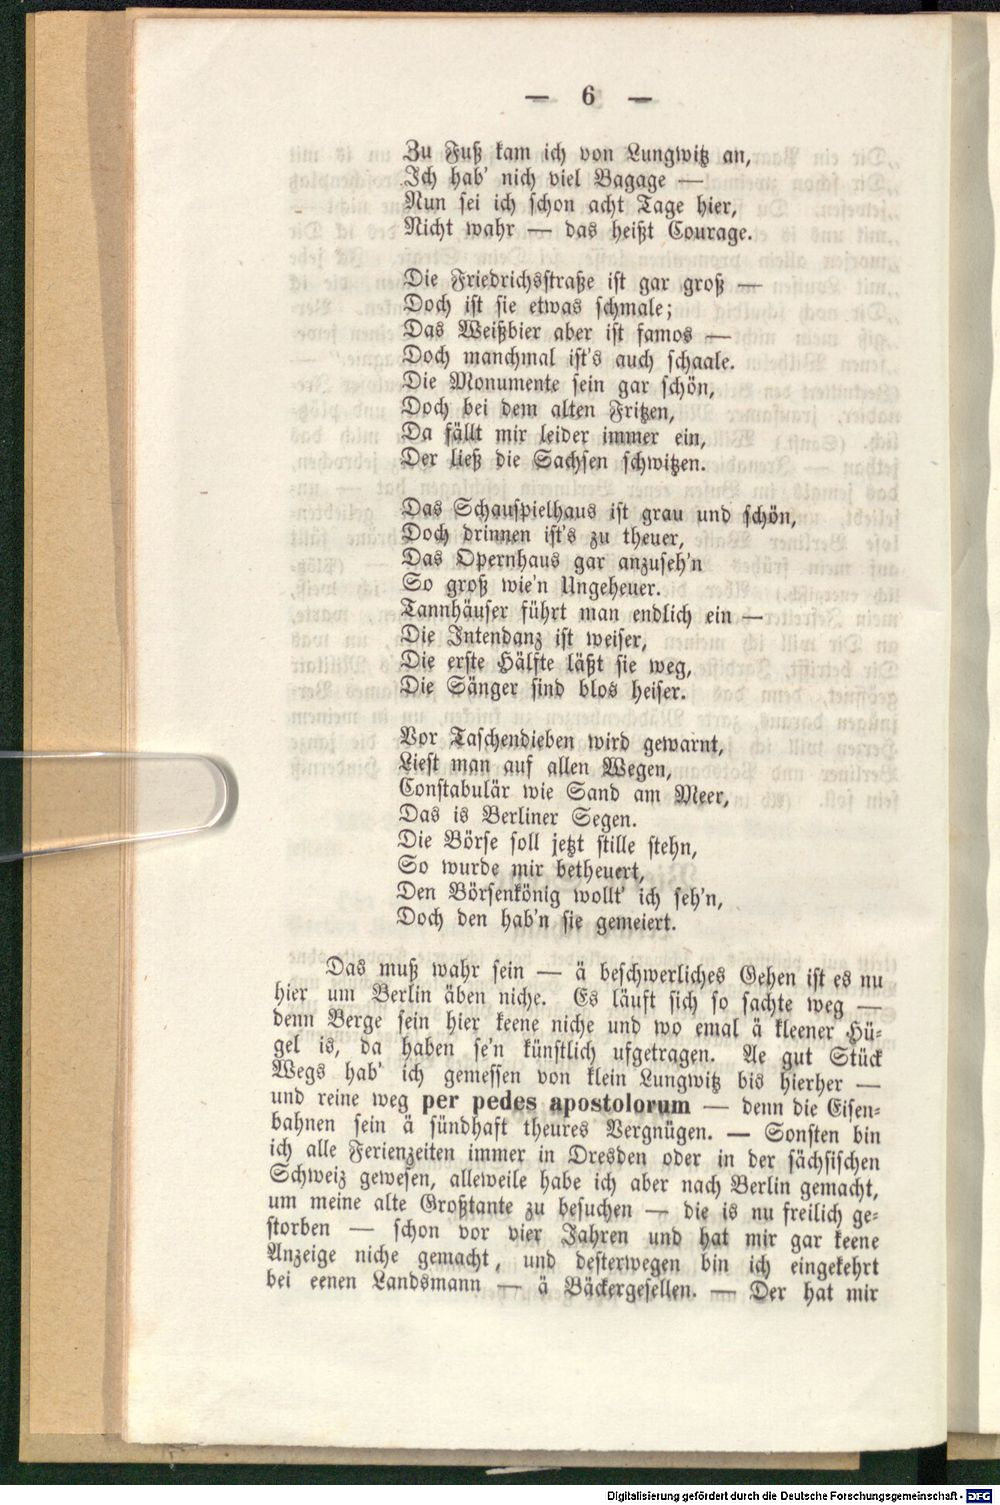 — 6 —
Zu Fuß kam ich von Lungwitz an,
Ich hab' nich viel Bagage —
Nun sei ich schon acht Tage hier,
Nicht wahr — das heißt Courage.
Die Friedrichsstraße ist gar groß —
Doch ist sie etwas schmale;
Das Weißbier aber ist famos —
Doch manchmal ist's auch schaale.
Die Monumente sein gar schön,
Doch bei dem alten Fritzen,
Da fällt mir leider immer ein,
Der ließ die Sachsen schwitzen.
Das Schauspielhaus ist grau und schön,
Doch drinnen ist's zu theuer,
Das Opernhaus gar anzuseh'n
So groß wie'n Ungeheuer.
Tannhäuser führt man endlich ein —
Die Intendanz ist weiser,
Die erste Hälfte läßt sie weg,
Die Sänger sind blos heiser.
Vor Taschendieben wird gewarnt,
Liest man auf allen Wegen,
Constabulär wie Sand am Meer,
Das is Berliner Segen.
Die Börse soll jetzt stille stehn,
So wurde mir betheuert,
Den Börsenkönig wollt' ich seh'n,
Doch den hab'n sie gemeiert.
Das muß wahr sein — ä beschwerliches Gehen ist es nu
hier um Berlin äben niche. Es läuft sich so sachte weg —
denn Berge sein hier keene niche und wo emal ä kleener Hü-
gel is, da haben se'n künstlich ufgetragen. Ae gut Stück
Wegs hab' ich gemessen von klein Lungwitz bis hierher —
und reine weg per pedes apostolorum — denn die Eisen-
bahnen sein ä sündhaft theures Vergnügen. — Sonsten bin
ich alle Ferienzeiten immer in Dresden oder in der sächsischen
Schweiz gewesen, alleweile habe ich aber nach Berlin gemacht,
um meine alte Großtante zu besuchen — die is nu freilich ge-
storben — schon vor vier Jahren und hat mir gar keene
Anzeige niche gemacht, und desterwegen bin ich eingekehrt
bei eenen Landsmann — ä Bäckergesellen. — Der hat mir
Digitalisierung gefördert durch die Deutsche Forschungsgemeinschaft - DFG